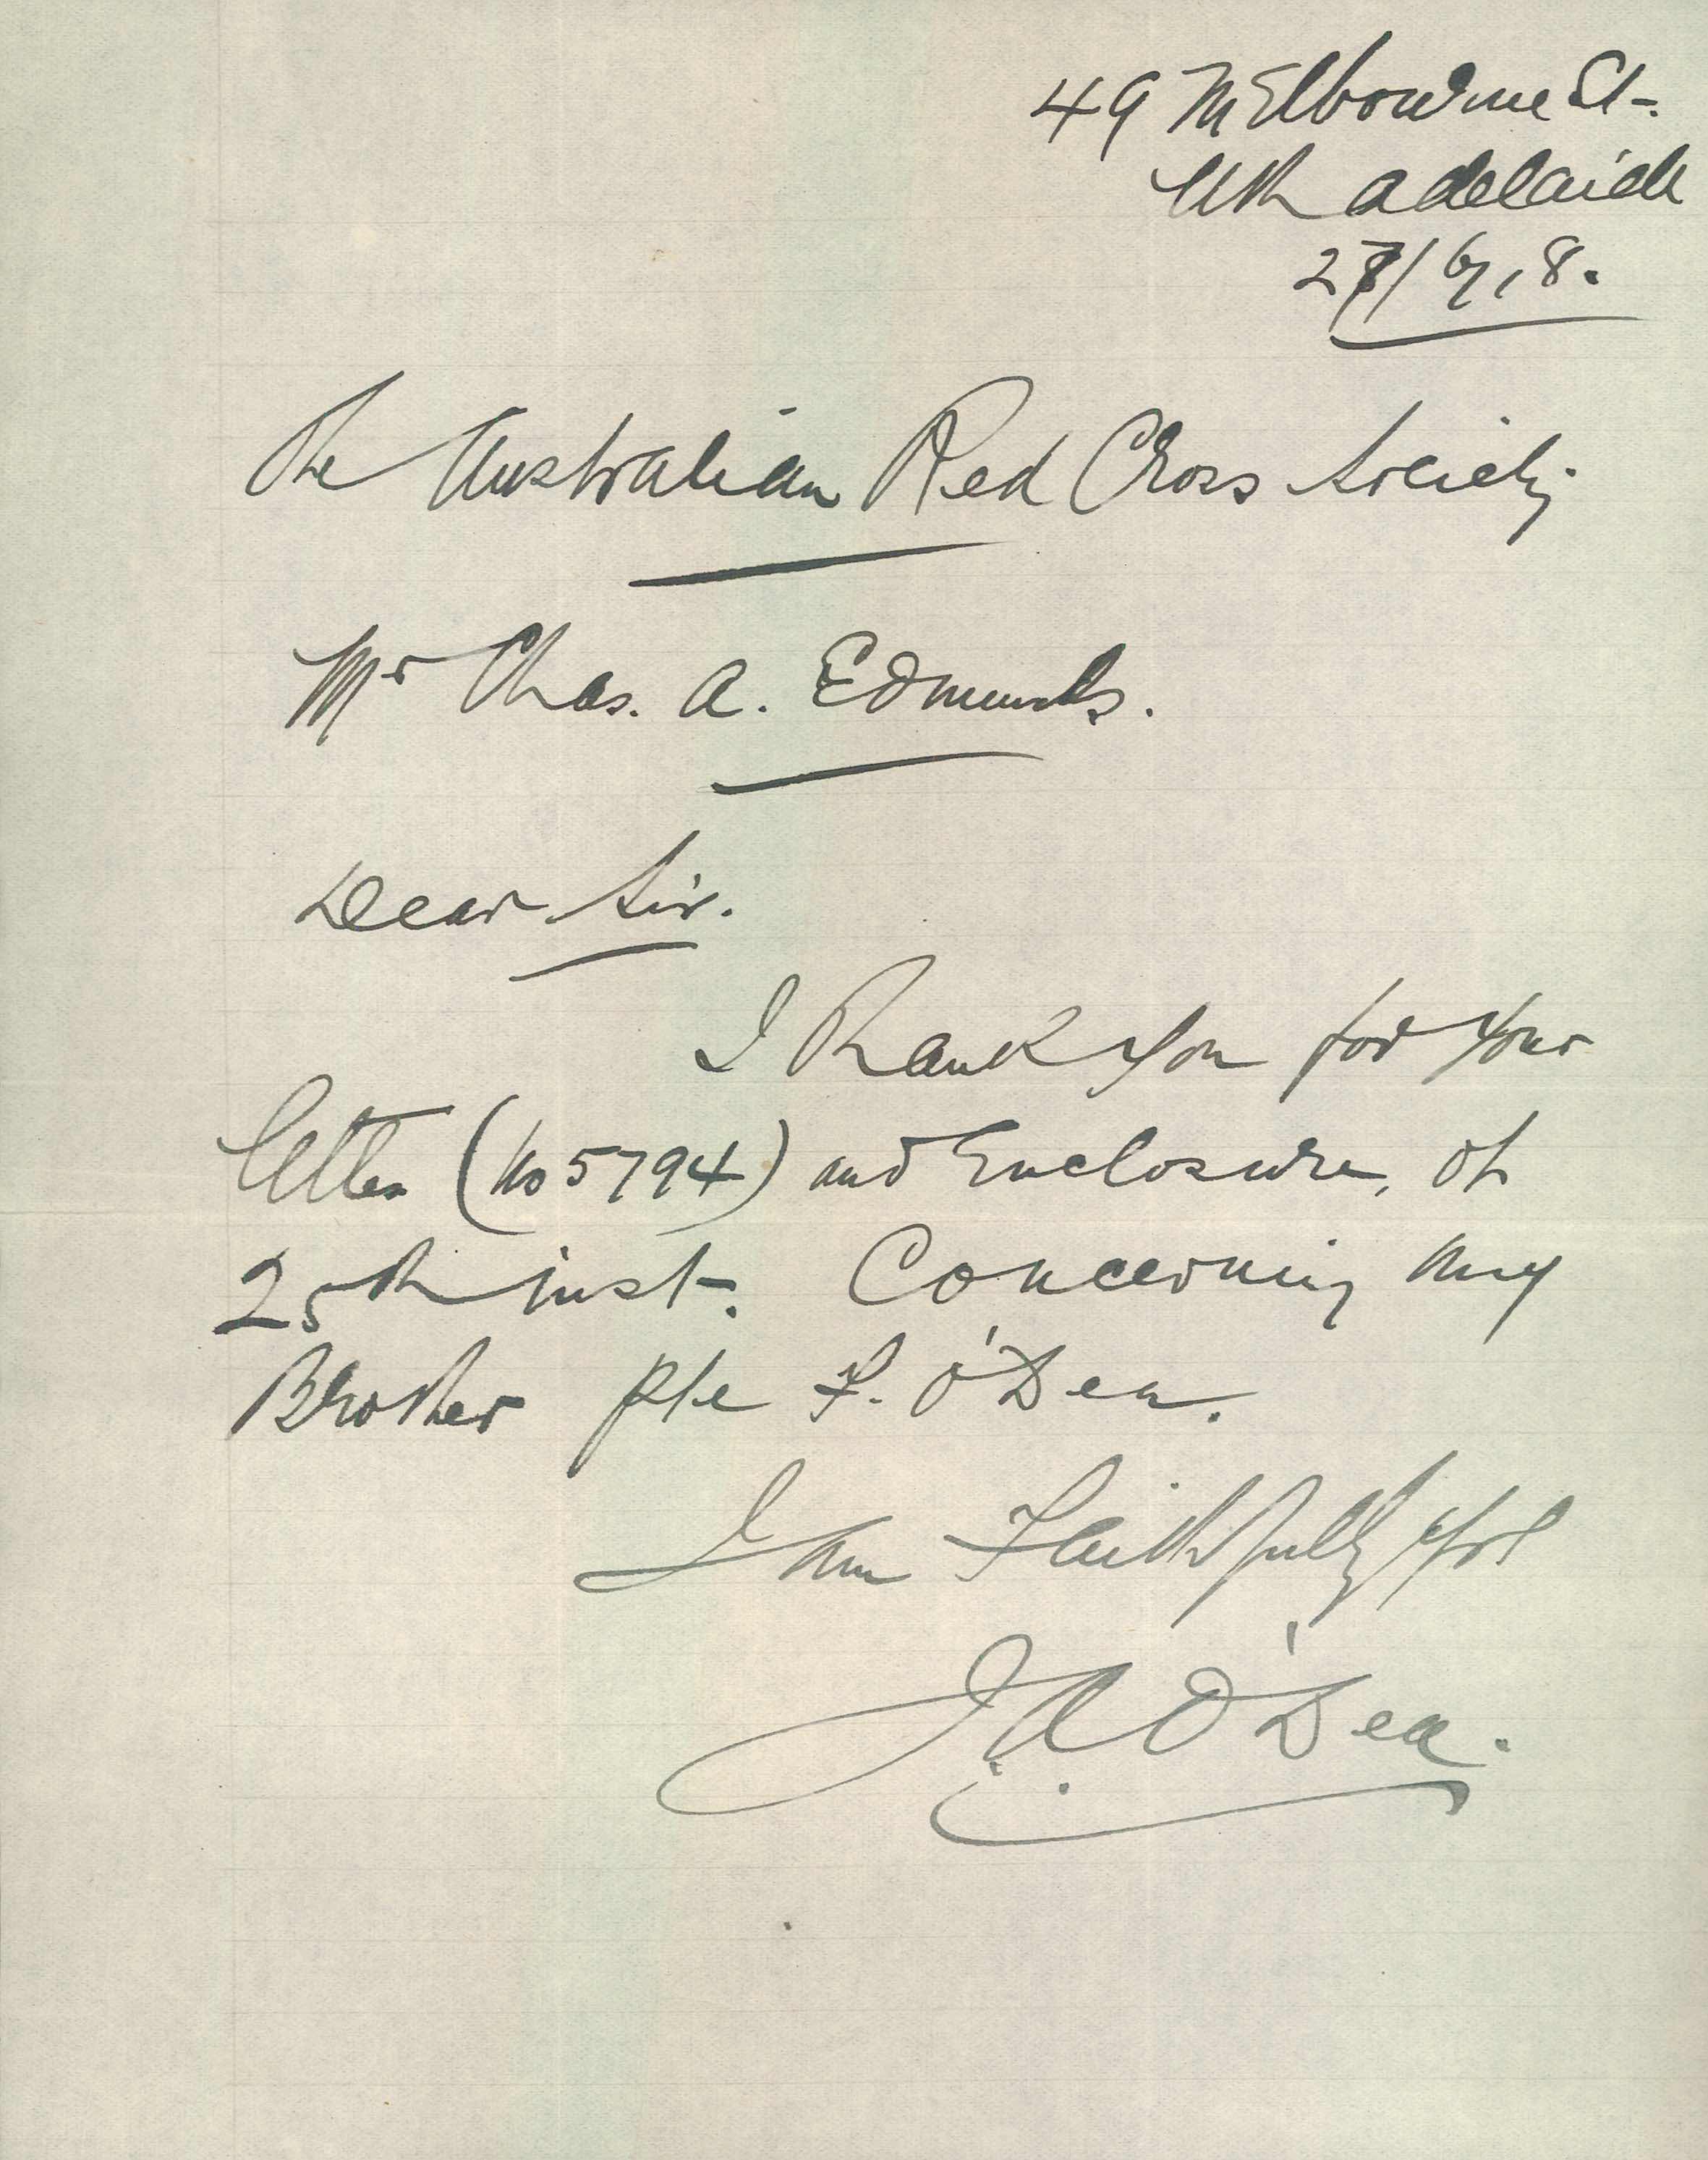 49 Melbourne St.
Nth Adelaide
27/6/18.
The Australian Red Cross Society
Mr Chas. A. Edmunds.
Dear Sir.
I Thank you for your
letter (No 5794) and Enclosure, of
25th inst. Concerning my
Brother Pte F. O'Dea.
I am Faithfully Yrs
J.A. O'Dea.